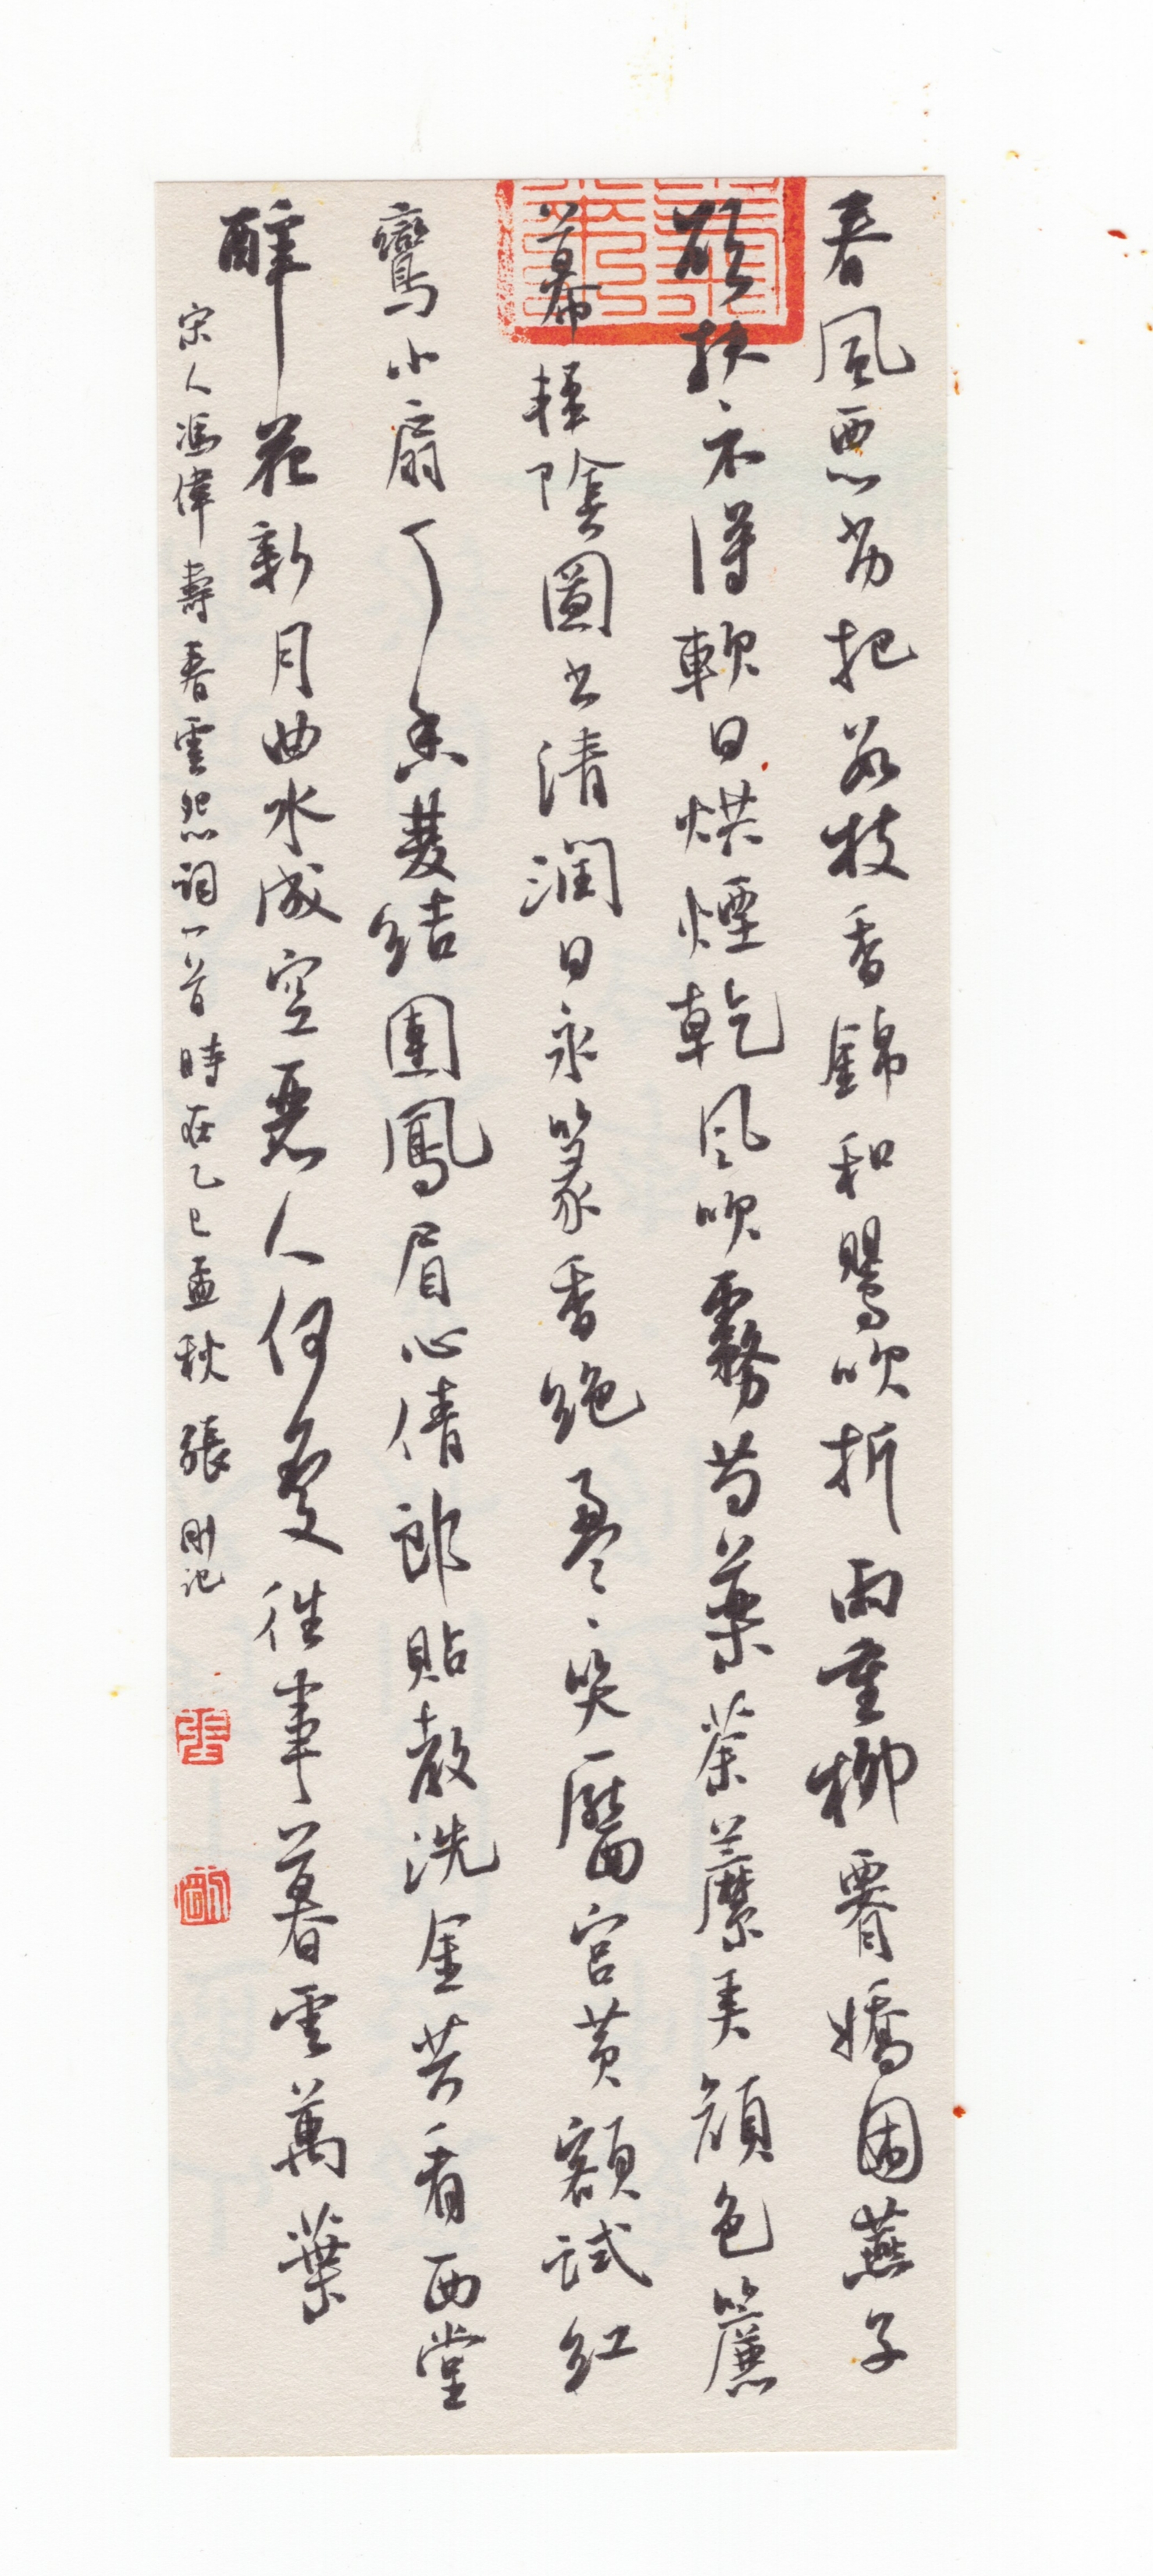 春風惡劣把數枝香錦和鶯吹折雨重柳腰嬌困燕子
欲扶〻不得軟日烘煙乾風吹霧芍藥荼蘼弄顏色簾
幕輕陰圖書清潤日永篆香絕盈〻笑靨宮黃額試紅
鸞小扇丁香雙結團鳳眉心倩郎貼教洗金共看西堂
醉花新月曲水成空麗人何處往事暮雲萬葉
宋人馮偉壽春雲怨詞一首時在乙巳孟秋張剛記